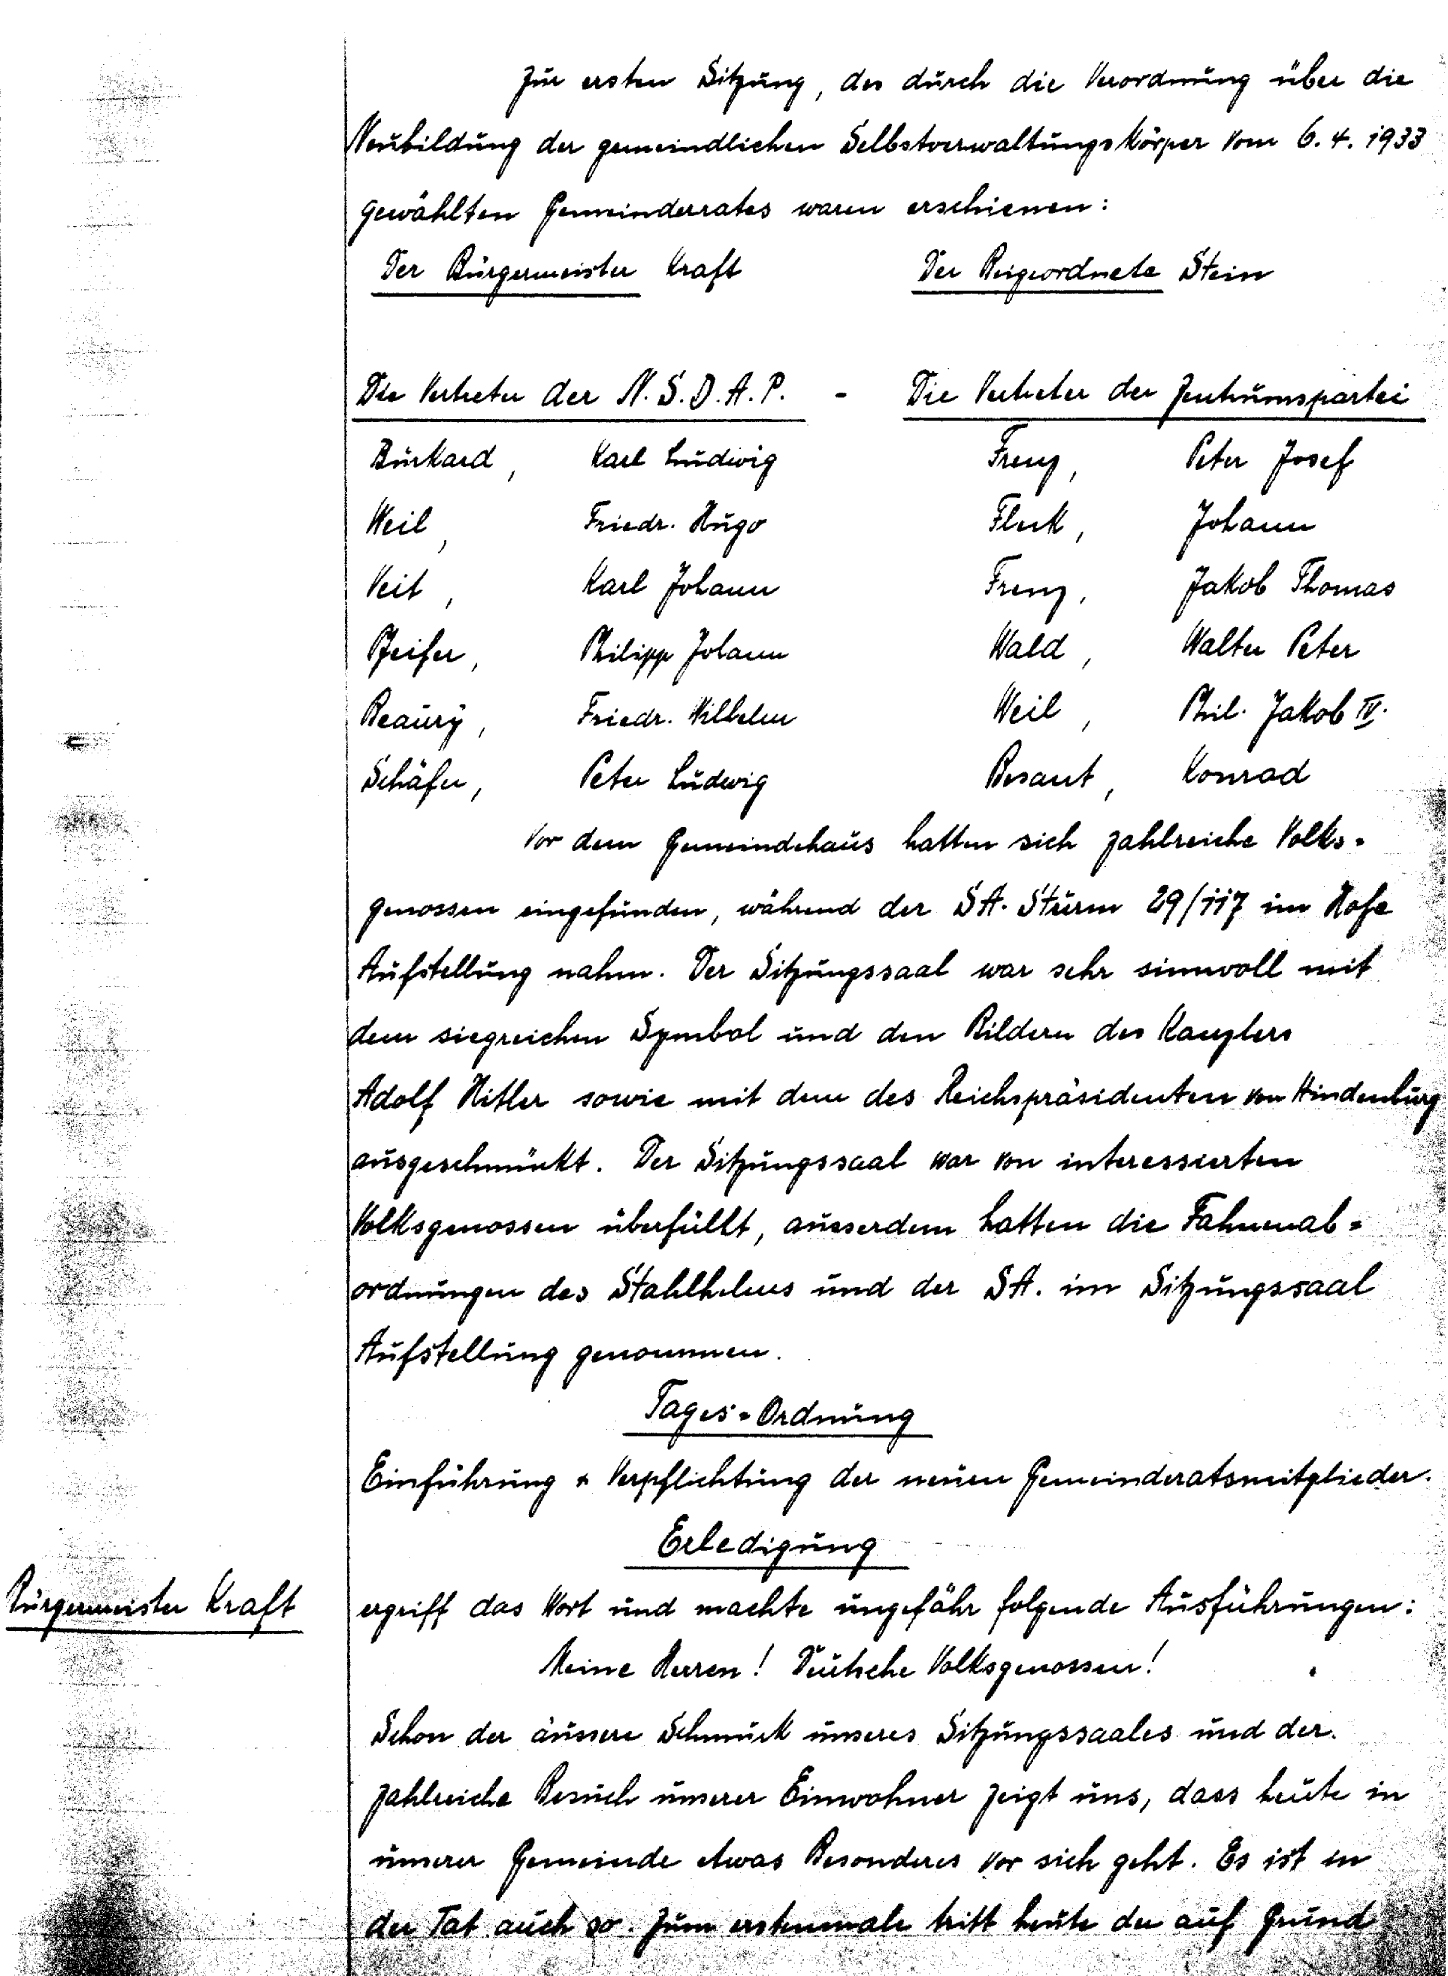 Zur ersten Sitzung, des durch die Verordnung über die
Neubildung der gemeindlichen Selbstverwaltungskörper vom 6.4.1933
gewählten Gemeinderrates waren erschienen:
Der Bürgermeister Kraft Der Beigeordnete Stein
Die Vertreter der N.S.D.A.P. - Die Vertreter der Zentrumspartei
Burkard, Karl Ludwig Frenz, Peter Josef
Weil, Friedr. Hugo Fleck, Johann
Veit, Karl Johann Frenz, Jakob Thomas
Pfeifer, Philipp Johann Wald, Walter Peter
Beaury, Friedr. Wilhelm Weil, Phil. Jakob IV.
Schäfer, Peter Ludwig Besant, Konrad
Vor dem Gemeindehaus hatten sich zahlreiche Volks-
genossen eingefunden, während der SA. Sturm 29/117 im Hofe
Aufstellung nahm. Der Sitzungssaal war sehr sinnvoll mit
dem siegreichen Symbol und den Bildern des Kanzlers
Adolf Hitler sowie mit dem des Reichspräsidenten von Hindenburg
ausgeschmückt. Der Sitzungssaal war von interessierten
Volksgenossen überfüllt, ausserdem hatten die Fahnenab=
ordnungen des Stahlhelms und der SA. im Sitzungssaal
Aufstellung genommen.
Tages-Ordnung
Einführung & Verpflichtung der neuen Gemeinderatsmitglieder.
Erledigung
Bürgermeister Kraft ergriff das Wort und machte ungefähr folgende Ausführungen:
Meine Herren! Deutsche Volksgenossen!
Schon der äussere Schmuck unseres Sitzungssaales und der
zahlreiche Besuch unserer Einwohner zeigt uns, dass heute in
unserer Gemeinde etwas Besonderes vor sich geht. Es ist in
der Tat auch so. Zum erstenmale tritt heute der auf Grund